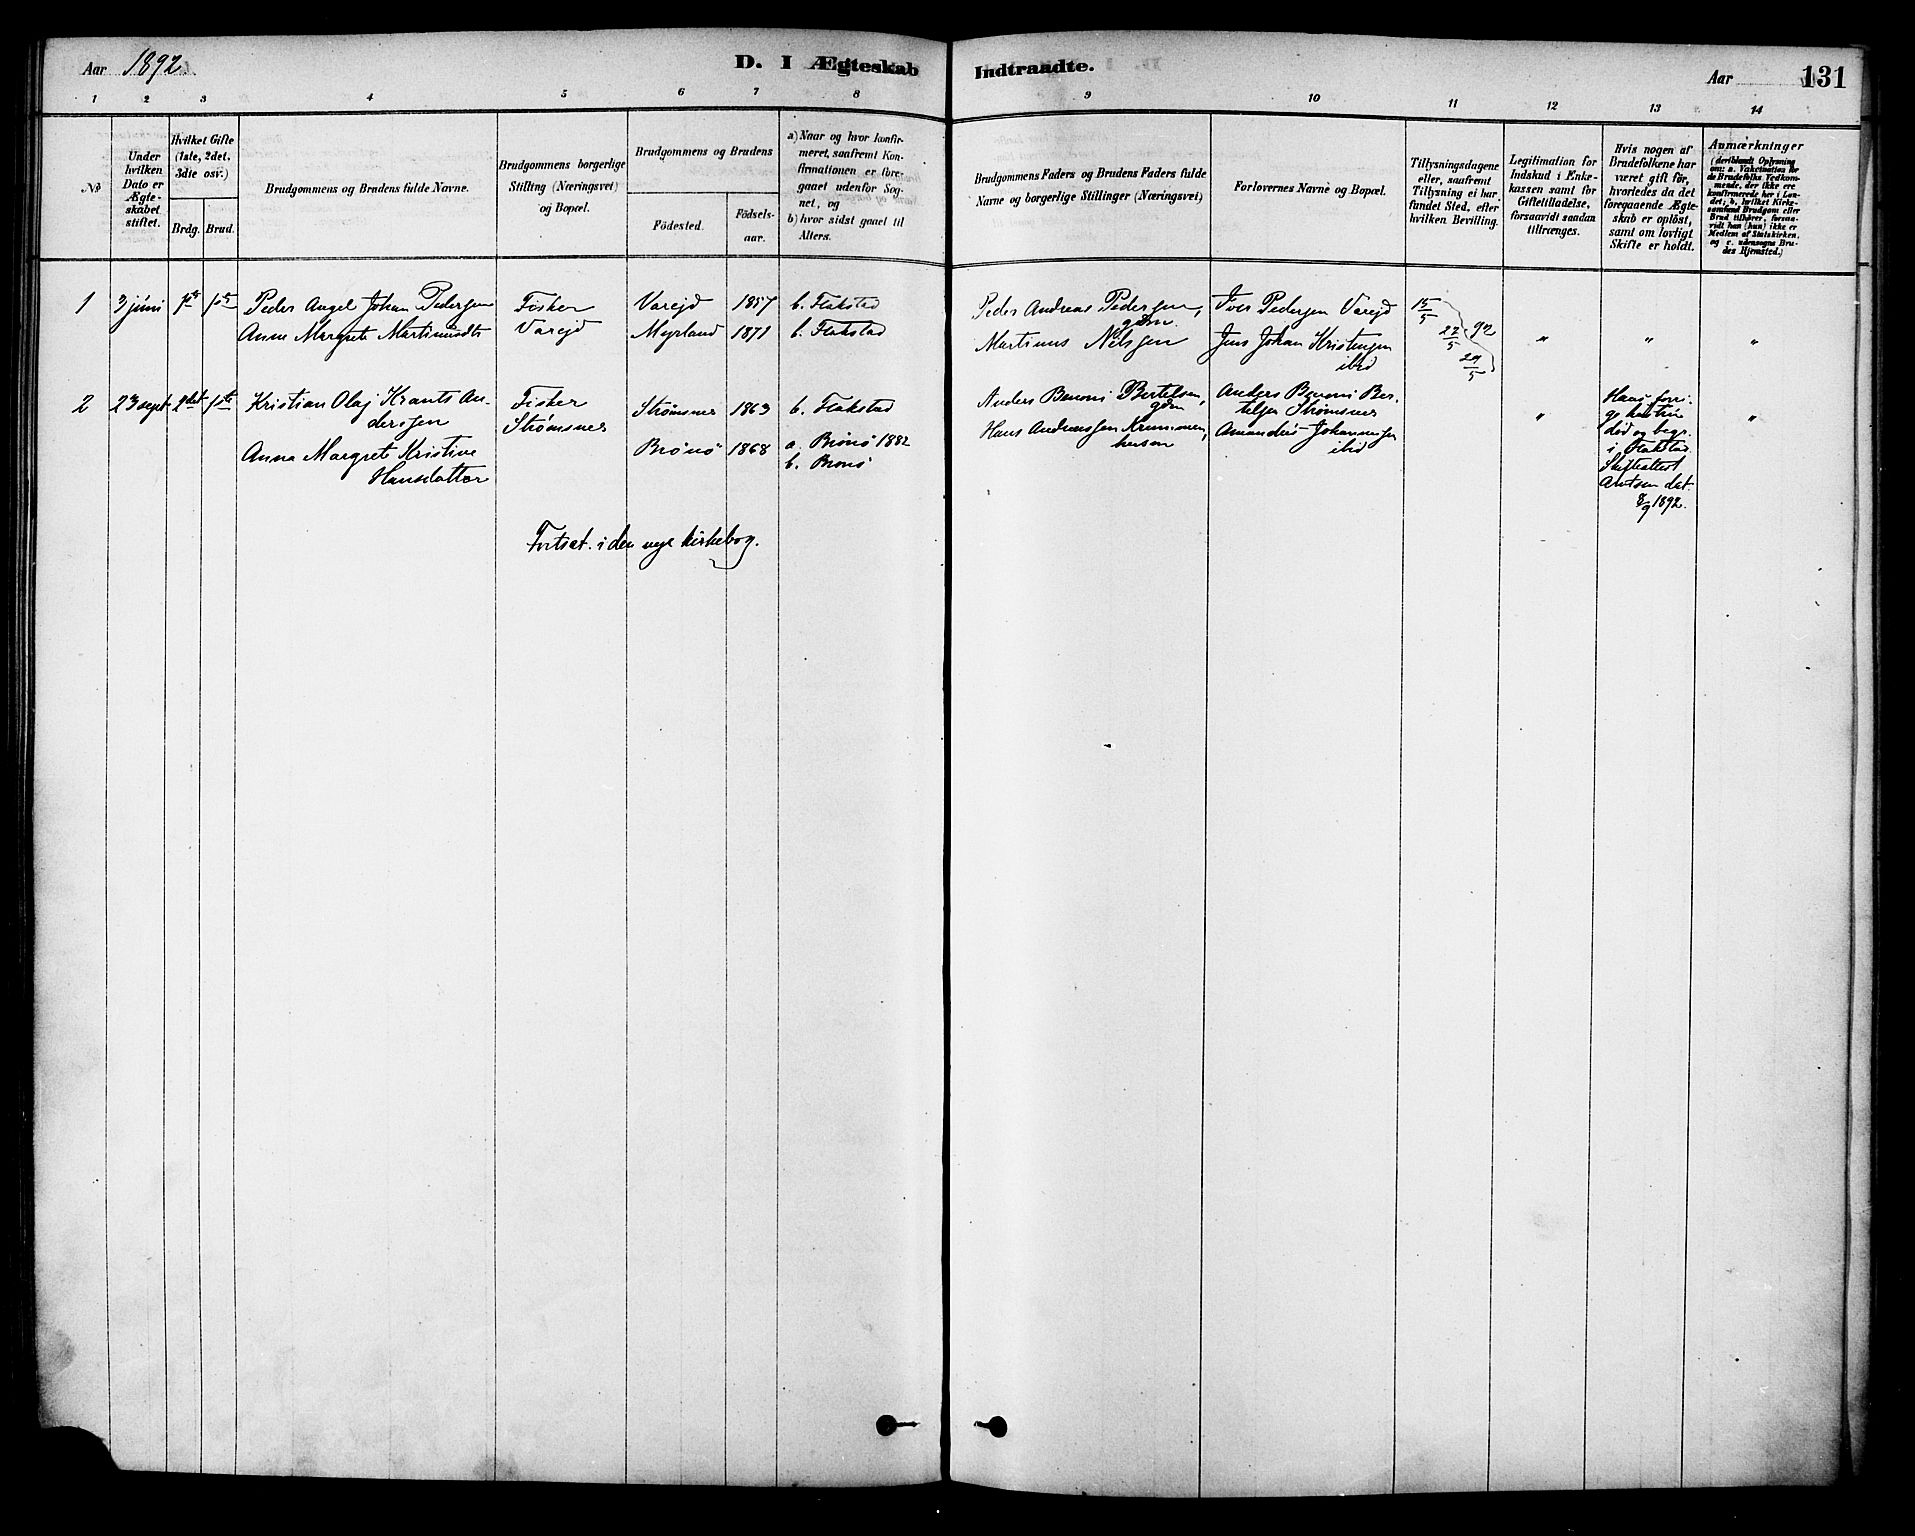 Aar 1892.
D. I Ægteskab Indtraadte.
Aar 131
1 2 3 4 5 6 7 8 9 10 11 12 13 14
№
Under hvilken Dato er Ægteskabet stiftet.
Hvilket Gifte (1ste, 2det, 3die osv.)
Brdg. Brud.
Brudgommens og Brudens fulde Navne.
Brudgommens borgerlige Stilling (Næringsvei) og Bopæl.
Brudgommens og Brudens
Födested.
Födselsaar.
a) Naar og hvor konfirmeret, saafremt Konfirmationen er foregaaet udenfor Sognet, og
b) hvor sidst gaaet til Alters.
Brudgommens Faders og Brudens Faders fulde Navne og borgerlige Stillinger (Næringsvei)
Forlovernes Navne og Bopæl.
Tillysningsdagene eller, saafremt Tillysning ei har fundet Sted, efter hvilken Bevilling.
Legitimation for Indskud i Enkekassen samt for Giftetilladelse, forsaavidt saadan tiltrænges.
Hvis nogen af Brudefolkene har været gift för, hvorledes da det foregaaende Ægteskab er oplöst, samt om lovligt Skifte er holdt.
Anmærkninger
(deriblandt Oplysning om: a. Vakcination for de Brudefolks Vedkommende, der ikke ere konfirmerede her i Landet; b. hvilket Kirkesamfund Brudgom eller Brud tilhører, forsaavidt han (hun) ikke er Medlem af Statskirken, og c. udensogns Brudes Hjemsted.)
1 3 juni 1ste 1ste Peder Angel Johan Pedersen Fisker Vareid 1857 b. Flakstad Peder Andreas Pedersen, gdm. Iver Pedersen Vareid 15/5
Anne Margrete Martinusdtr Vareid Myrland 1871 b. Flakstad Martinus Nilsen Jens Johan Kristensen ibid 22/5 92 29/5 " " "
2 23 sept. 2det 1ste Kristian Olaj Krants Andersen Fisker Strømsnes Strømsnes 1863 b. Flakstad Anders Benoni Bertelsen, gdm Anders Benoni Bertelsen Strømsnes " "
Anna Margrete Kristine Hansdatter Brønø 1868 a. Brønø 1882 b. Brønø Hans Andreassen husm Johannesen ibid
Hans forrige hustru død og begr. i Flakstad. Skifteattest dat. 8/9 1892.
Fortsat. i den nye kirkebog.